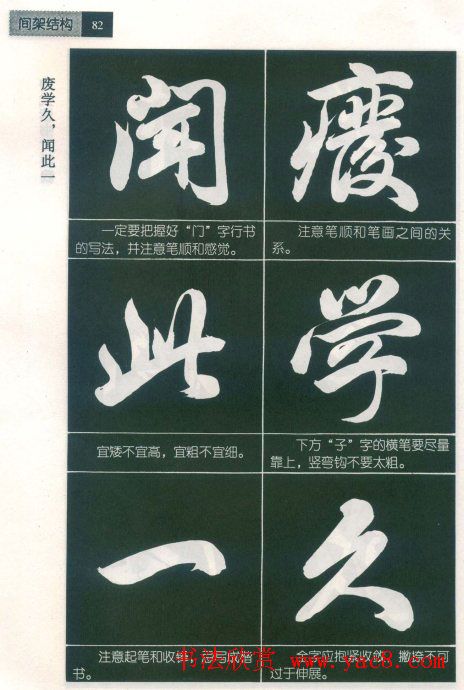 间架结构 82
废学久，闻此一
癈
注意笔顺和笔画之间的关
系。
学
下方“子”字的横笔要尽量
靠上，竖弯钩不要太粗。
久
全字应抱紧收敛，撇捺不可
过于伸展。
闻
一定要把握好“门”字行书
的写法，并注意笔顺和感觉。
此
宜矮不宜高，宜粗不宜细。
一
注意起笔和收锋，忌写成楷
书。
书法欣赏 www.yac8.com